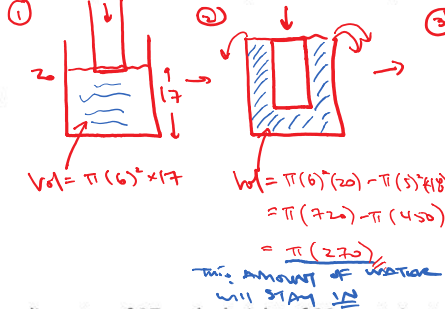 ① ② ③
20 17
Vol = π(6)² × 17
Vol = π(6)²(20) − π(5)²×18
= π(720) − π(450)
= π(270)
THIS AMOUNT OF WATER
WILL STAY IN